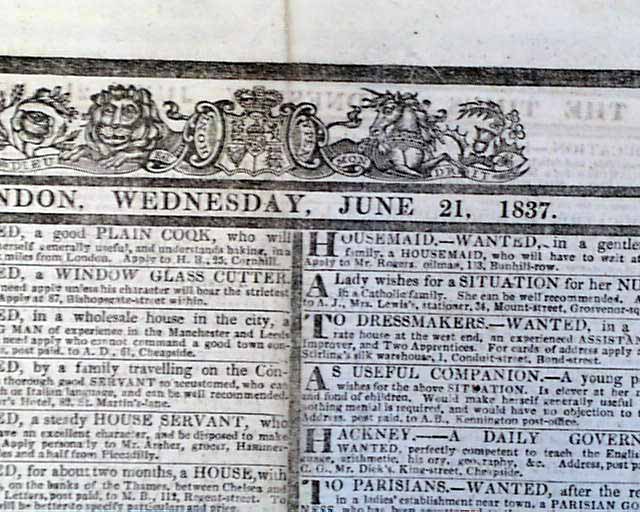 DIEU ET MON DROIT
NDON, WEDNESDAY, JUNE 21, 1837.
ED, a good PLAIN COOK, who will
erself generally useful, and understands baking, in a
miles from London. Apply to H. B., 25, Cornhill.
ED, a WINDOW GLASS CUTTER.
need apply unless his character will bear the strictest
Apply at 87, Bishopsgate-street within.
ED, in a wholesale house in the city, a
G MAN of experience in the Manchester and Leeds
need apply who cannot command a good town con-
s, post paid, to A. D., 61, Cheapside.
ED, by a family travelling on the Con-
thorough good SERVANT so accustomed, who can
h or Italian language, and can be well recommended.
Hotel, St. Martin's-lane.
ED, a steady HOUSE SERVANT, who
ave an excellent character, and be disposed to make
pply personally to Mr. Archer, grocer, Hammer-
les and a half from Piccadilly.
ED, for about two months, a HOUSE, with
on the banks of the Thames, between Chelsea and
Letters, post paid, to M. B., 112, Regent-street. To
will be better to specify particulars and price.
HOUSEMAID.—WANTED, in a gentle
family, a HOUSEMAID, who will have to wait at
Apply to Mr. Rogers, oilman, 133, Bunhill-row.
A Lady wishes for a SITUATION for her NU
in a Catholic family. She can be well recommended. A
to A. J., Mrs. Lewis's, stationer, 34, Mount-street, Grosvenor-s
TO DRESSMAKERS.—WANTED, in a
rate house at the west end, an experienced ASSISTAN
Improver, and Two Apprentices. For cards of address apply
Stirling's silk warehouse, 1, Conduit-street, Bond-street.
AS USEFUL COMPANION.—A young p
wishes for the above SITUATION. Is clever at her
and fond of children. Would make herself generally useful
nothing menial is required, and would have no objection to
Address, post paid, to A.B., Kennington post-office.
HACKNEY.—A DAILY GOVERN
WANTED, perfectly competent to teach the English
guage, arithmetic, history, geography, &c. Address, post p
C. G., Mr. Dick's, King-street, Cheapside.
TO PARISIANS.—WANTED, after the
in a ladies' establishment near town, a PARISIAN GO
NESS, who has been accustomed